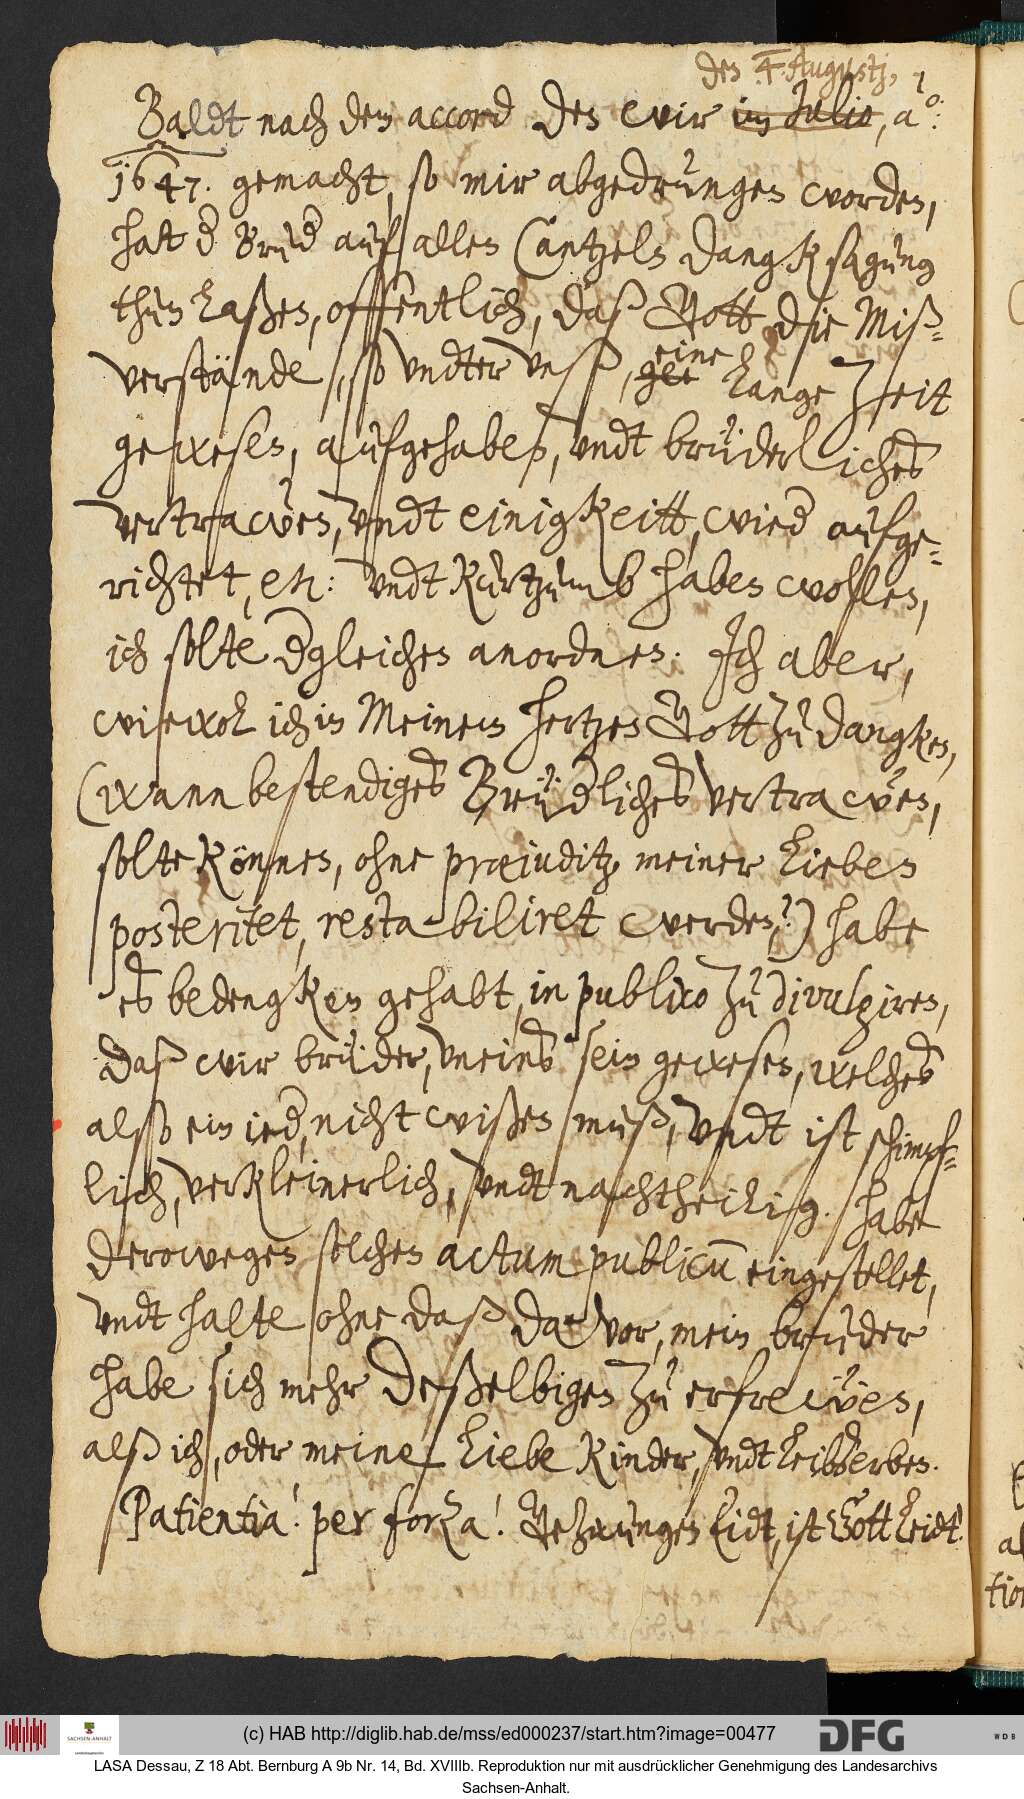 den 4. Augustj,
Baldt nach dem accord den wir im Julio, ao:
1647. gemacht, so mir abgedrungen worden,
hat d Brud auf allen Cantzeln dangksagung
thun laßen, offentlich, daß Gott die Miß-
verstände, so undter unß, gar eine lange Zeit
gewesen, aufgehaben, undt brüderliches
vertrawen, undt einigkeitt, wied aufge-
richtet, etc: undt kurtzumb haben wollen,
ich solte dgleichen anordnen. Ich aber,
wiewol ich in Meinem hertzen Gott zu dangken,
(wann bestendiges Brüdliches vertrawen,
solte können, ohne præjuditz meiner lieben
posteritet, restabiliret werden?) habe
es bedengken gehabt, in publico zu divulgiren,
daß wir brüder, uneins sein gewesen, welches
also ein ied, nicht wißen muß, undt ist schimpf-
lich, verkleinerlich, undt nachtheilig. habe
derowegen solchen actum publicum eingestellet,
undt halte ohne daß davor, mein bruder
habe sich mehr deßelbigen zu erfrewen,
alß ich, oder meine liebe Kinder, undt leibserben.
Patientia! per forza! Gezwungen Eidt, ist Gott leidt!
(c) HAB http://diglib.hab.de/mss/ed000237/start.htm?image=00477
SACHSEN-ANHALT
DFG
WDB
LASA Dessau, Z 18 Abt. Bernburg A 9b Nr. 14, Bd. XVIIIb. Reproduktion nur mit ausdrücklicher Genehmigung des Landesarchivs
Sachsen-Anhalt.